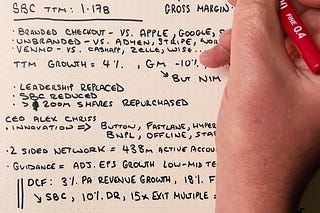 SBC TTM: 1.17B GROSS MARGIN:
· BRANDED CHECKOUT - VS. APPLE, GOOGLE, S
· UNBRANDED - VS. ADYEN, STRIPE, WOR
· VENMO - VS. CASHAPP, ZELLE, WISE...
TTM GROWTH = 4%, GM -10%
↳ BUT NIM
· LEADERSHIP REPLACED
· SBC REDUCED
· > 200M SHARES REPURCHASED
CEO ALEX CHRISS
· INNOVATION => BUTTON, FASTLANE, HYPER
BNPL, OFFLINE, STA
· 2 SIDED NETWORK = 438M ACTIVE ACCOU
· GUIDANCE = ADJ. EPS GROWTH LOW-MID TE
DCF: 3% PA REVENUE GROWTH, 18% F
↳ SBC, 10% DR, 15x EXIT MULTIPLE =
0.4